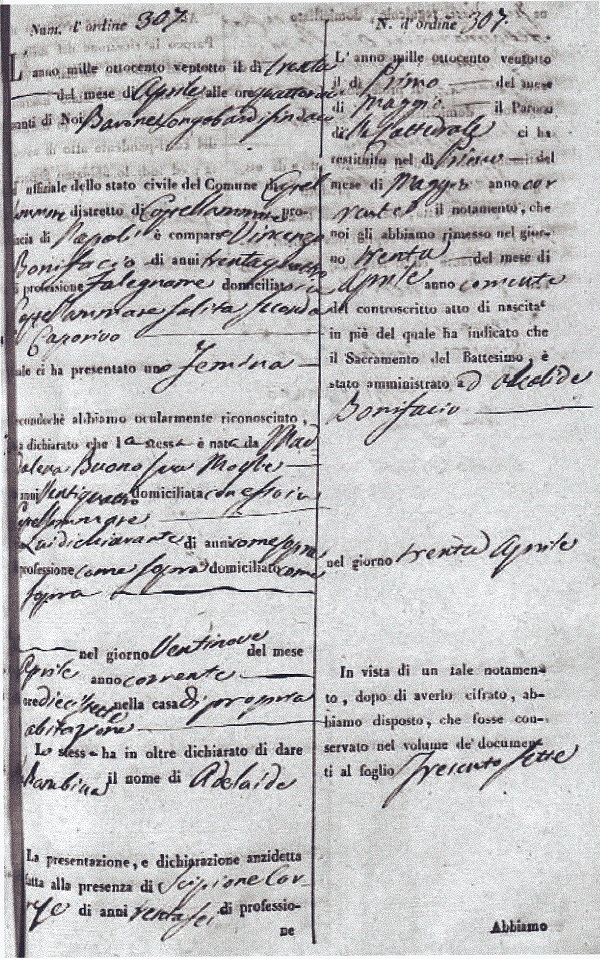 Num. d'ordine 307.
L'anno mille ottocento ventotto il dì trenta
del mese di Aprile alle ore
anti di Noi Barone Longobardi Sindaco
uffiziale dello stato civile del Comune di Castel
distretto di Castellammare pro-
incia di Napoli è comparso Vincenzo
Bonifacio di anni trentaquattro
i professione Falegname domiciliato in
Castellammare salita seconda
ale ci ha presentato una Femina
econdochè abbiamo ocularmente riconosciuto,
a dichiarato che la stessa è nata da Mad
dalena Buono sua Moglie
anni Ventiquattro domiciliata con esso in
Castellammare
Lui dichiarante di anni come sopra
professione come sopra domiciliato come
sopra
nel giorno Ventinove del mese
Aprile anno corrente
ore diecisette nella casa di propria
abitazione
Lo stess ha in oltre dichiarato di dare
Bambina il nome di Adelaide
La presentazione, e dichiarazione anzidetta
fatta alla presenza di Scipione
di anni trentasei di professio-
ne
N. d'ordine 307.
L'anno mille ottocento ventotto
il dì Primo del mese
di Maggio il Parroco
di Cattedrale ci ha
restituito nel dì Primo del
mese di Maggio anno cor
rente il notamento, che
noi gli abbiamo rimesso nel gior-
no trenta del mese di
Aprile anno corrente
del controscritto atto di nascita
in piè del quale ha indicato che
il Sacramento del Battesimo, è
stato amministrato ad Adelaide
Bonifacio
nel giorno trenta Aprile
In vista di un tale notamen-
to, dopo di averlo cifrato, ab-
biamo disposto, che fosse con-
servato nel volume de' documen-
ti al foglio Trecento sette
Abbiamo